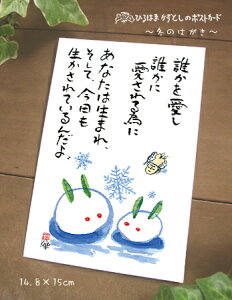 ひろはまかずとしのポストカード
～冬のはがき～
誰かを愛し
誰かに
愛される為に
あなたは生まれ、
そして、今日も
生かされているんだよ。
14.8×15cm